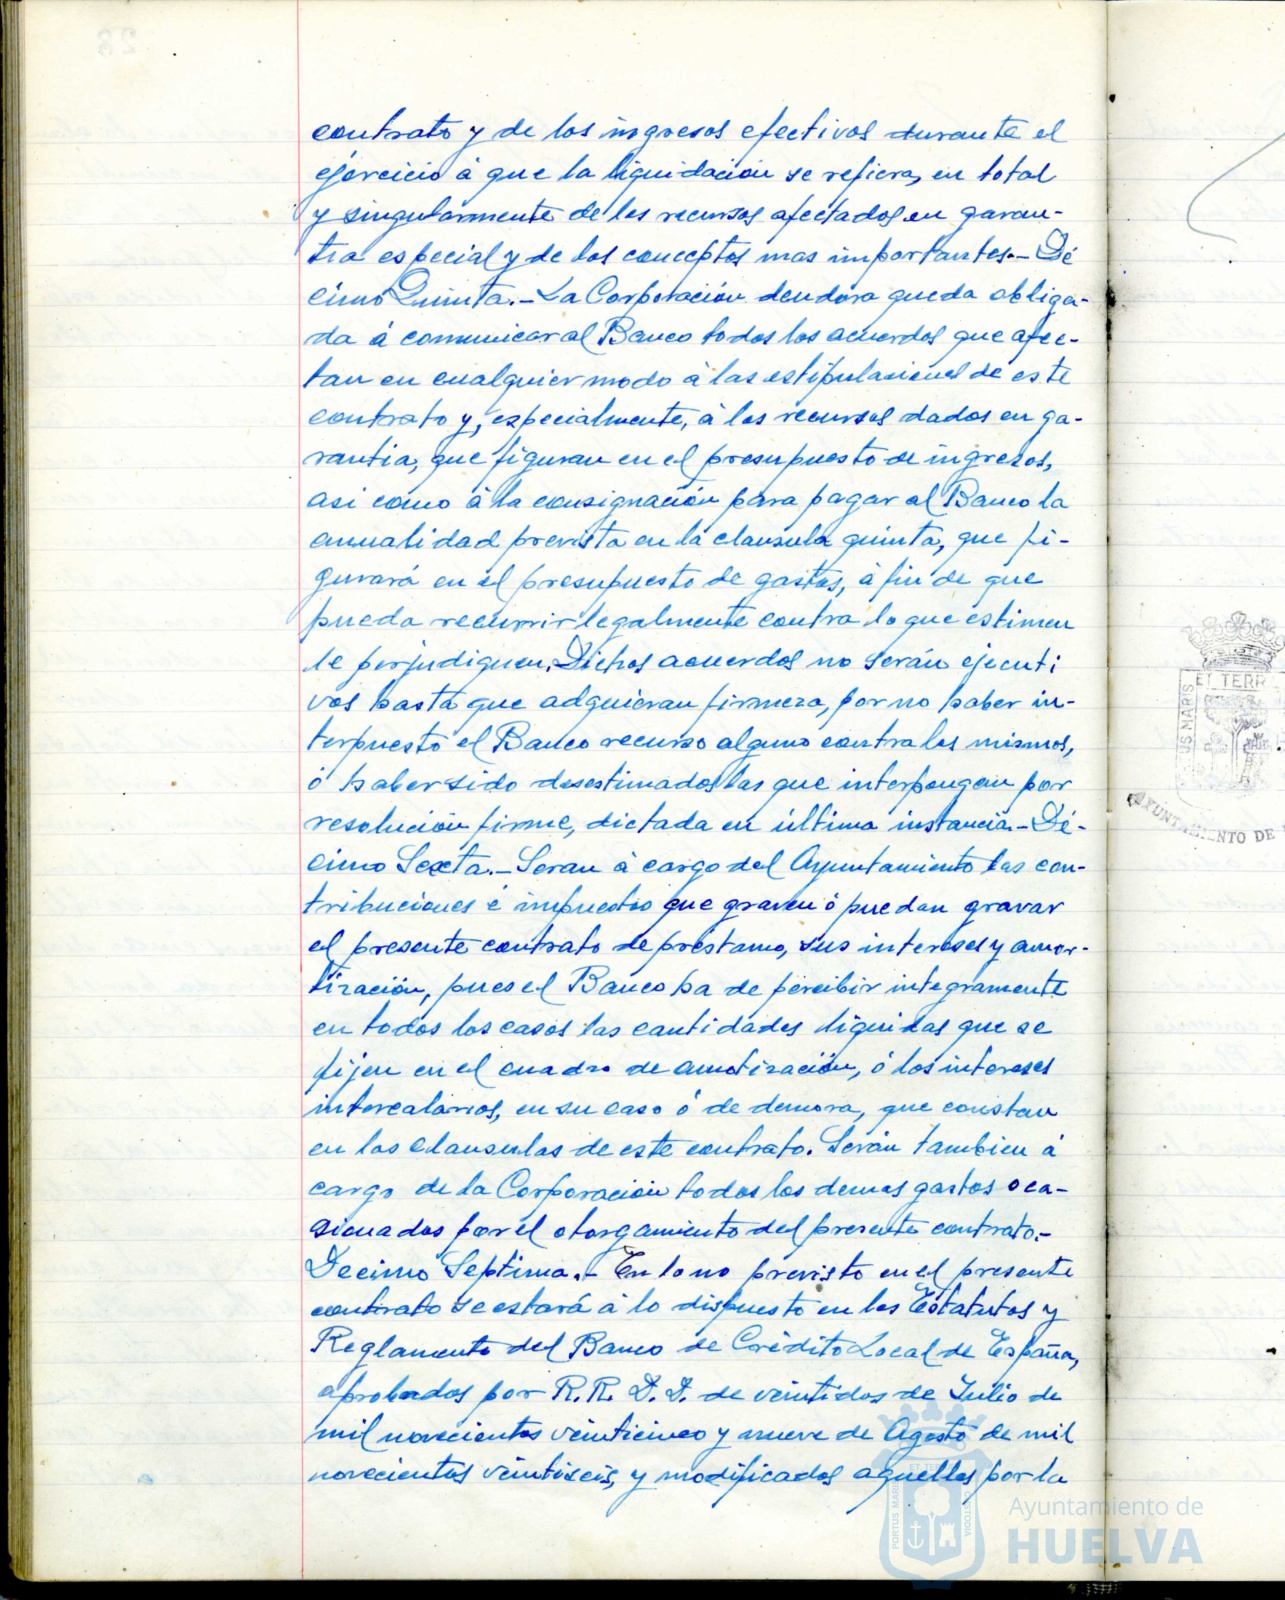 contrato y de los ingresos efectivos durante el
ejercicio á que la liquidación se refiera, en total
y singularmente de los recursos afectados en garan-
tía especial y de los conceptos mas importantes.- Dé
cimo Quinta.- La Corporación deudora queda obliga-
da á comunicar al Banco todos los acuerdos que afec-
tan en cualquier modo á las estipulaciones de este
contrato y, especialmente, á los recursos dados en ga-
rantia, que figuran en el presupuesto de ingresos,
asi como á la consignación para pagar al Banco la
anualidad prevista en la clausula quinta, que fi-
gurará en el presupuesto de gastos, á fin de que
pueda recurrir legalmente contra lo que estimen
le perjudiquen. Dichos acuerdos no serán ejecuti
vos hasta que adquieran firmeza, por no haber in-
terpuesto el Banco recurso alguno contra los mismos,
ó haber sido desestimados las que interpongan por
resolución firme, dictada en última instancia.- Dé-
cimo Sexta.- Seran á cargo del Ayuntamiento las con-
tribuciones é impuestos que graven ó puedan gravar
el presente contrato de préstamo, sus intereses y amor-
tización, pues el Banco ha de percibir integramente
en todos los casos las cantidades liquidas que se
fijen en el cuadro de amotización, ó los intereses
intercalarios, en su caso ó de demora, que constan
en las clausulas de este contrato. Serán tambien á
cargo de la Corporación todos los demas gastos oca-
sionados por el otorgamiento del presente contrato.-
Decimo Septima.- En lo no previsto en el presente
contrato se estará á lo dispuesto en los Estatutos y
Reglamento del Banco de Crédito Local de España,
aprobados por R.R. D.D. de veintidos de Julio de
mil novecientos veinticinco y nueve de Agosto de mil
novecientos veintiseis, y modificados aquellos por la
ET TERR
US MARIS
AYUNTAMIENTO DE
PORTUS MARIS
ET TERR
CUSTODIA
Ayuntamiento de
HUELVA